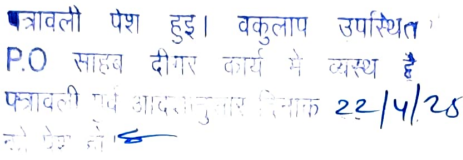 पत्रावली पेश हुइ। वकुलाप उपस्थित
P.O साहब दीगर कार्य मे व्यस्थ है
पत्रावली पूर्व आदेशानुसार दिनाक 22/4/25
को पेश हो।